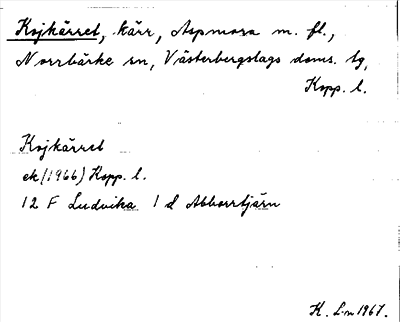 Kojkärret, kärr, Aspmora m. fl.,
Norrbärke sn, Västerbergslags doms. tg,
Kopp. l.
Kojkärret
ek (1966) Kopp. l.
12 F Ludvika 1 d Abborrtjärn
K. L-n 1967.